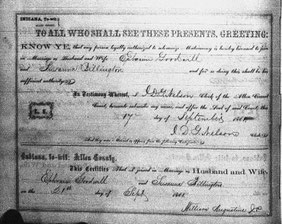 INDIANA, to-wit:
TO ALL WHO SHALL SEE THESE PRESENTS, GREETING:
KNOW YE, that any person legally authorized to solemnize Matrimony is hereby licensed to join
in Marriage as Husband and Wife Ephraim Goodwill
and Susanna Billington and for so doing this shall be his
sufficient authority.
In Testimony Whereof, I, I D G Nelson Clerk of the Allen Circuit
Court, hereunto subscribe my name and affix the Seal of said Court this
17th day of September
I D G Nelson
Indiana, to-wit: Allen County.
This Certifies That I joined in Marriage as Husband and Wife,
Ephraim Goodwill and Susanna Billington
on the 21st day of Sept.
William Augustine